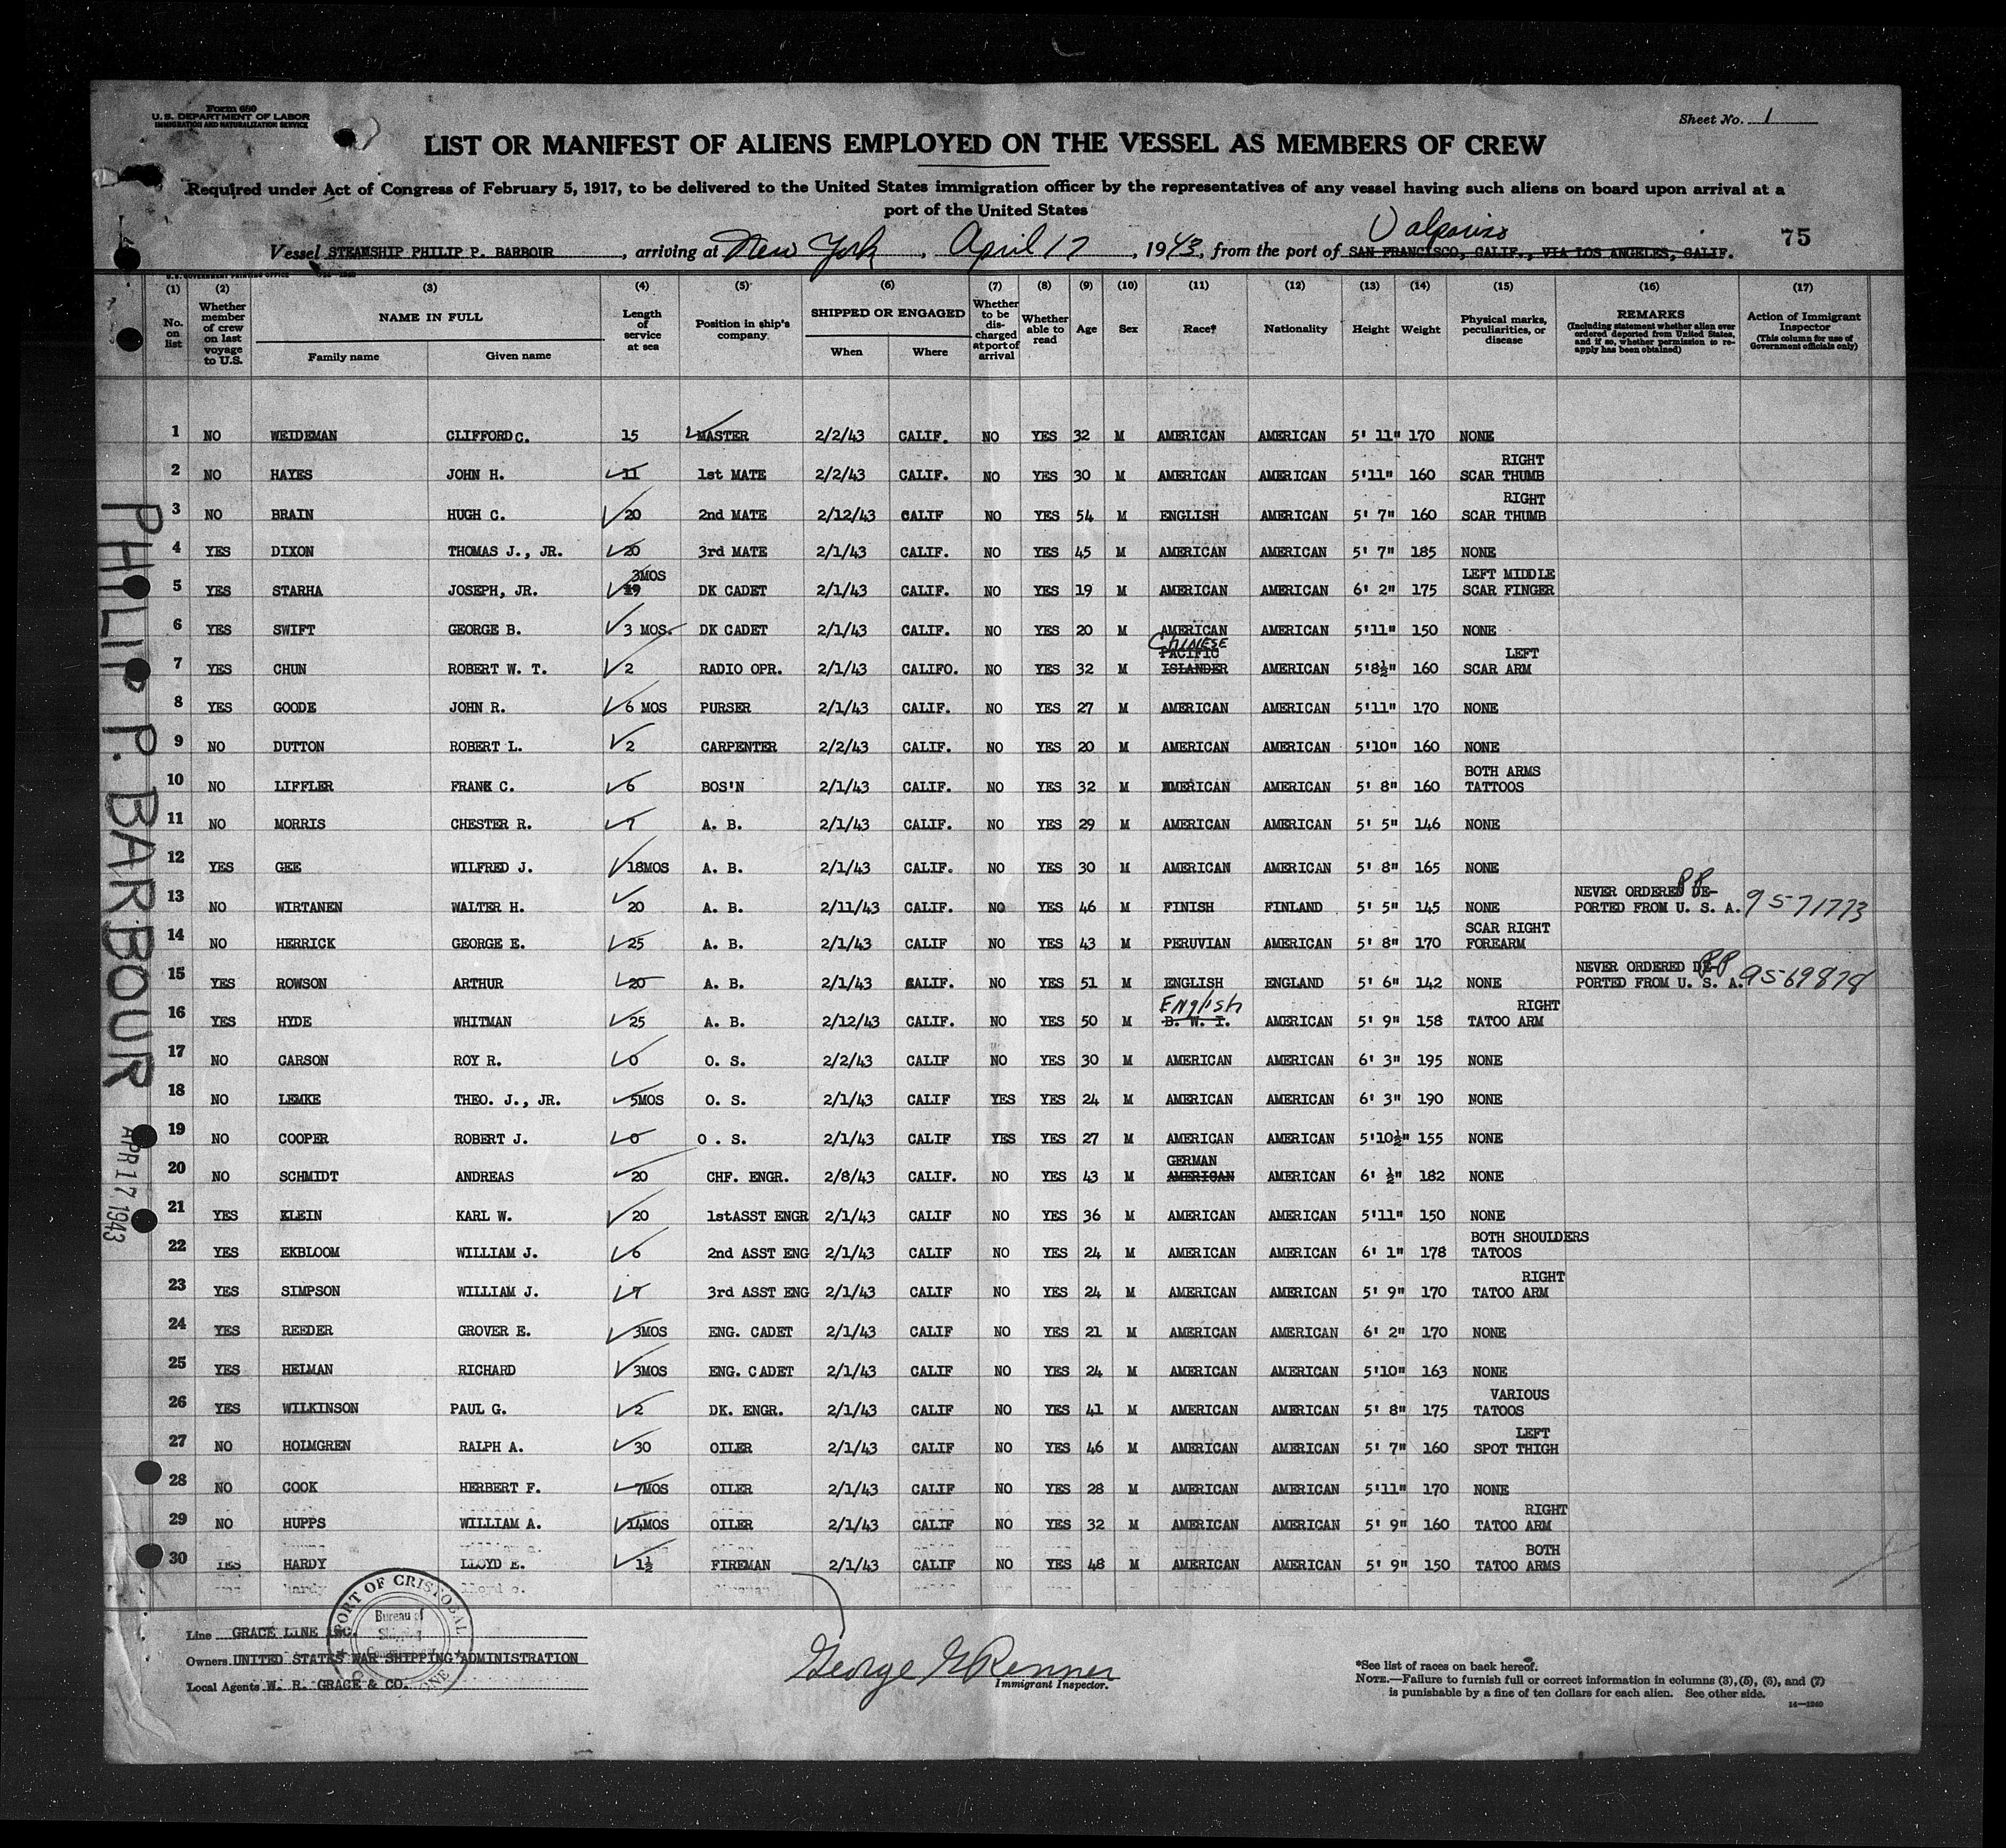 Form 680
U. S. DEPARTMENT OF LABOR
IMMIGRATION AND NATURALIZATION SERVICE
Sheet No. 1
LIST OR MANIFEST OF ALIENS EMPLOYED ON THE VESSEL AS MEMBERS OF CREW
Required under Act of Congress of February 5, 1917, to be delivered to the United States immigration officer by the representatives of any vessel having such aliens on board upon arrival at a
port of the United States
Valpariso
75
Vessel STEAMSHIP PHILIP P. BARBOUR, arriving at New York, April 17, 1943, from the port of SAN FRANCISCO, CALIF., VIA LOS ANGELES, CALIF.
U. S. GOVERNMENT PRINTING OFFICE
(1) (2) (3) (4) (5) (6) (7) (8) (9) (10) (11) (12) (13) (14) (15) (16) (17)
No. on list
Whether member of crew on last voyage to U.S.
NAME IN FULL
Family name Given name
Length of service at sea
Position in ship's company
SHIPPED OR ENGAGED
When Where
Whether to be discharged at port of arrival
Whether able to read
Age
Sex
Race*
Nationality
Height
Weight
Physical marks, peculiarities, or disease
REMARKS
(Including statement whether alien ever ordered deported from United States, and if so, whether permission to re-apply has been obtained)
Action of Immigrant Inspector
(This column for use of Government officials only)
1 NO WEIDEMAN CLIFFORD C. 15 MASTER 2/2/43 CALIF. NO YES 32 M AMERICAN AMERICAN 5' 11" 170 NONE
RIGHT
2 NO HAYES JOHN H. 11 1st MATE 2/2/43 CALIF. NO YES 30 M AMERICAN AMERICAN 5'11" 160 SCAR THUMB
RIGHT
3 NO BRAIN HUGH C. 20 2nd MATE 2/12/43 CALIF NO YES 54 M ENGLISH AMERICAN 5' 7" 160 SCAR THUMB
4 YES DIXON THOMAS J., JR. 20 3rd MATE 2/1/43 CALIF. NO YES 45 M AMERICAN AMERICAN 5' 7" 185 NONE
3MOS LEFT MIDDLE
5 YES STARHA JOSEPH, JR. 19 DK CADET 2/1/43 CALIF. NO YES 19 M AMERICAN AMERICAN 6' 2" 175 SCAR FINGER
6 YES SWIFT GEORGE B. 3 MOS. DK CADET 2/1/43 CALIF. NO YES 20 M AMERICAN AMERICAN 5'11" 150 NONE
CHINESE
PACIFIC LEFT
7 YES CHUN ROBERT W. T. 2 RADIO OPR. 2/1/43 CALIFO. NO YES 32 M ISLANDER AMERICAN 5'8½" 160 SCAR ARM
8 YES GOODE JOHN R. 6 MOS PURSER 2/1/43 CALIF. NO YES 27 M AMERICAN AMERICAN 5'11" 170 NONE
9 NO DUTTON ROBERT L. 2 CARPENTER 2/2/43 CALIF. NO YES 20 M AMERICAN AMERICAN 5'10" 160 NONE
BOTH ARMS
10 NO LIFFLER FRANK C. 6 BOS'N 2/1/43 CALIF. NO YES 32 M AMERICAN AMERICAN 5' 8" 160 TATTOOS
11 NO MORRIS CHESTER R. 7 A. B. 2/1/43 CALIF. NO YES 29 M AMERICAN AMERICAN 5' 5" 146 NONE
12 YES GEE WILFRED J. 18MOS A. B. 2/1/43 CALIF. NO YES 30 M AMERICAN AMERICAN 5' 8" 165 NONE
PP
NEVER ORDERED DE-
13 NO WIRTANEN WALTER H. 20 A. B. 2/11/43 CALIF. NO YES 46 M FINISH FINLAND 5' 5" 145 NONE PORTED FROM U. S. A. 9571773
SCAR RIGHT
14 NO HERRICK GEORGE E. 25 A. B. 2/1/43 CALIF NO YES 43 M PERUVIAN AMERICAN 5' 8" 170 FOREARM
PP
NEVER ORDERED DE-
15 YES ROWSON ARTHUR 20 A. B. 2/1/43 CALIF. NO YES 51 M ENGLISH ENGLAND 5' 6" 142 NONE PORTED FROM U. S. A. 9569878
English RIGHT
16 YES HYDE WHITMAN 25 A. B. 2/12/43 CALIF. NO YES 50 M B. W. I. AMERICAN 5' 9" 158 TATOO ARM
17 NO CARSON ROY R. 0 O. S. 2/2/43 CALIF NO YES 30 M AMERICAN AMERICAN 6' 3" 195 NONE
18 NO LEMKE THEO. J., JR. 5MOS O. S. 2/1/43 CALIF YES YES 24 M AMERICAN AMERICAN 6' 3" 190 NONE
19 NO COOPER ROBERT J. 0 O . S. 2/1/43 CALIF YES YES 27 M AMERICAN AMERICAN 5'10½" 155 NONE
GERMAN
20 NO SCHMIDT ANDREAS 20 CHF. ENGR. 2/8/43 CALIF. NO YES 43 M AMERICAN AMERICAN 6' ½" 182 NONE
21 YES KLEIN KARL W. 20 1stASST ENGR 2/1/43 CALIF NO YES 36 M AMERICAN AMERICAN 5'11" 150 NONE
BOTH SHOULDERS
22 YES EKBLOOM WILLIAM J. 6 2nd ASST ENG 2/1/43 CALIF NO YES 24 M AMERICAN AMERICAN 6' 1" 178 TATOOS
RIGHT
23 YES SIMPSON WILLIAM J. 7 3rd ASST ENG 2/1/43 CALIF NO YES 24 M AMERICAN AMERICAN 5' 9" 170 TATOO ARM
24 YES REEDER GROVER E. 3MOS ENG. CADET 2/1/43 CALIF NO YES 21 M AMERICAN AMERICAN 6' 2" 170 NONE
25 YES HEIMAN RICHARD 3MOS ENG. CADET 2/1/43 CALIF NO YES 24 M AMERICAN AMERICAN 5'10" 163 NONE
VARIOUS
26 YES WILKINSON PAUL G. 2 DK. ENGR. 2/1/43 CALIF NO YES 41 M AMERICAN AMERICAN 5' 8" 175 TATOOS
LEFT
27 NO HOLMGREN RALPH A. 30 OILER 2/1/43 CALIF NO YES 46 M AMERICAN AMERICAN 5' 7" 160 SPOT THIGH
28 NO COOK HERBERT F. 7MOS OILER 2/1/43 CALIF NO YES 28 M AMERICAN AMERICAN 5'11" 170 NONE
RIGHT
29 NO HUPPS WILLIAM A. 14MOS OILER 2/1/43 CALIF NO YES 32 M AMERICAN AMERICAN 5' 9" 160 TATOO ARM
BOTH
30 YES HARDY LLOYD E. 1½ FIREMAN 2/1/43 CALIF NO YES 48 M AMERICAN AMERICAN 5' 9" 150 TATOO ARMS
PHILIP P. BARBOUR
APR 17 1943
PORT OF CRISTOBAL
Bureau of
Line GRACE LINE INC.
Owners UNITED STATES WAR SHIPPING ADMINISTRATION
Local Agents W. R. GRACE & CO.
George G Renner
Immigrant Inspector.
*See list of races on back hereof.
NOTE.—Failure to furnish full or correct information in columns (3), (5), (6), and (7)
is punishable by a fine of ten dollars for each alien. See other side.
14—1240